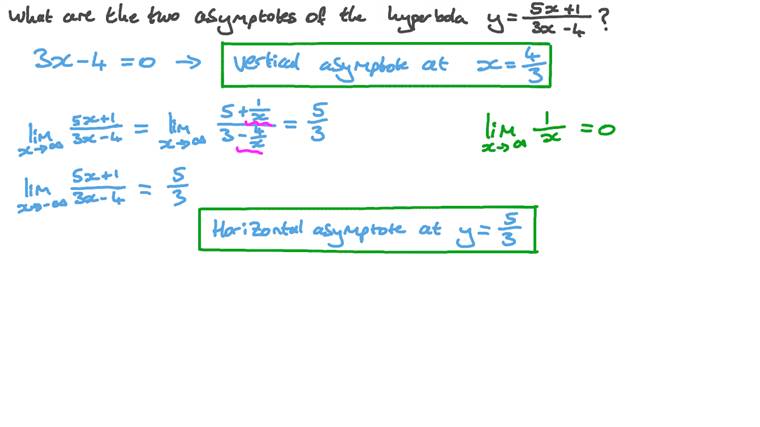 What are the two asymptotes of the hyperbola y = (5x+1)/(3x-4) ?
3x-4=0 → Vertical asymptote at x = 4/3
lim x→∞ (5x+1)/(3x-4) = lim x→∞ (5+1/x)/(3-4/x) = 5/3
lim x→∞ 1/x = 0
lim x→-∞ (5x+1)/(3x-4) = 5/3
Horizontal asymptote at y = 5/3